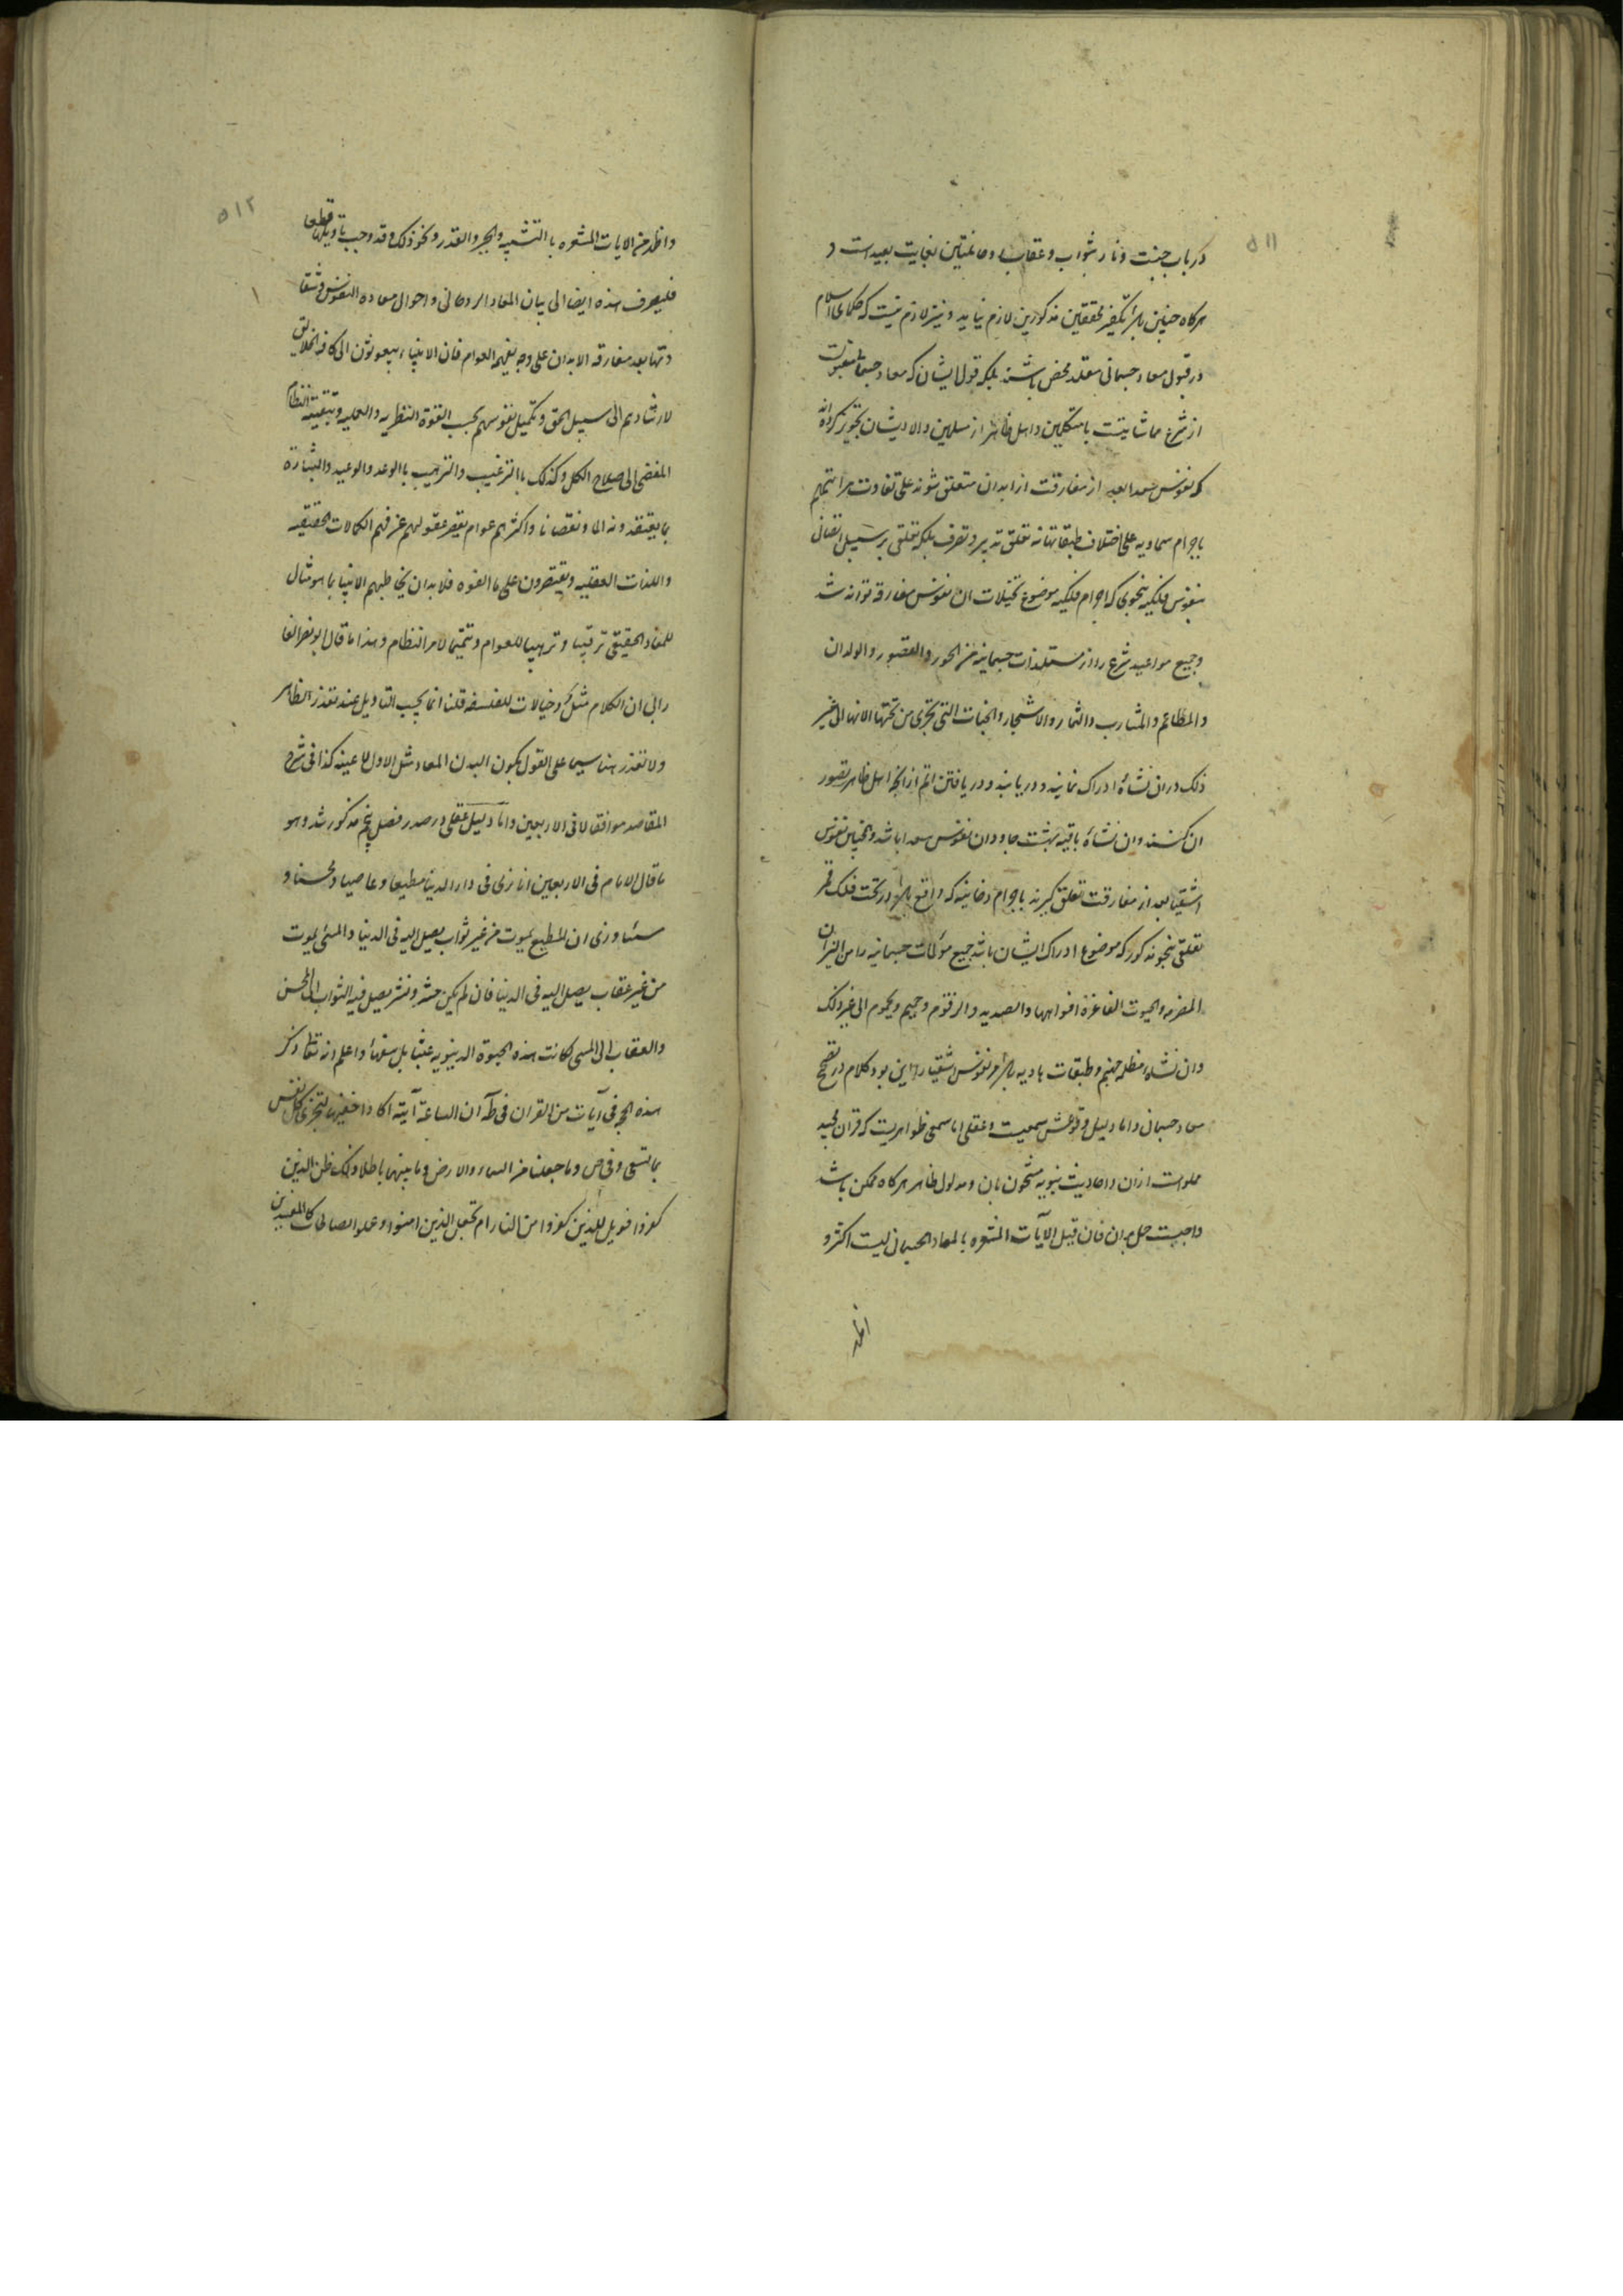 ۵۱۱
در باب جنت و نار بثواب و عقاب روحانیتین بغایت بعید است و
هرکاه چنین باشد تکفیر محققین مذکورین لازم نیاید و نیز لازم نیست که حکمای اسلام
در قبول معاد جسمانی مقلد محض باشند بلکه قول ایشان که معاد جسمانی مقبولست
از شرع مماشاتیست با متکلمین و اهل ظاهر از مسلمین والا ایشان تجویز کرده‌اند
که نفوس سعدا بعد از مفارقت از ابدان متعلق شوند علی تفاوت مراتبهم
باجرام سماویه علی اختلاف طبقاتها نه تعلق تدبیر و تصرف بلکه تعلقی بر سبیل اتصال
بنفوس فلکیه بنحوی که اجرام فلکیه موضوع تخیلات ان نفوس مفارقه تواند شد
و جمیع مواعید شرع را از مستلذات جسمانیه من الحور والقصور والولدان
والمطاعم والمشارب والثمار والاشجار والجنات التی تجری من تحتها الانهار الی غیر
ذلک در ان نشأه ادراک نمایند و دریابند و دریافتن اتم از انچه اهل ظاهر تصور
ان کنند و ان نشأه باقیه بهشت جاودان نفوس سعدا باشد و همچنین نفوس
اشقیا بعد از مفارقت تعلق کیرند باجرام دخانیه که واقع باشد در تحت فلک قمر
تعلقی بنحو مذکور که موضوع ادراک ایشان باشد جمیع مؤلمات جسمانیه را من النیران
المضرمه والحیوت الفاغرة افواهها والصدید والزقوم وحمیم ویحموم الی غیر ذلک
و ان نشاه مظلمه جهنم و طبقات هاویه باشد مر نفوس اشقیا را این بود کلام در تصحیح
معاد جسمانی و اما دلیل وقوعش سمعیست و عقلی اما سمعی ظواهریست که قران مجید
مملوست ازان و احادیث نبویه مشحون بان و مدلول ظاهر هرکاه ممکن باشد
واجبست حمل بران فان قیل الآیات المشعره بالمعاد الجسمانی لیست اکثر و
اظهر
۵۱۲
واظهر من الایات المشعره باالتشبیه والجبر والقدر ونحو ذلک وقد وجب تاویلها قطعا
فلیصرف هذه ایضا الی بیان المعاد الروحانی واحوال سعادة النفوس وشقا
وتها بعد مفارقه الابدان علی وجه یفهمه العوام فان الانبیاء مبعوثون الی کافه الخلایق
لارشادهم الی سبیل الحق وتکمیل نفوسهم بحسب القوة النظریه والعملیه وتبقیه النظام
المفضی الی صلاح الکل وکذلک باالترغیب والترهیب باالوعد والوعید والبشارة
بما یعتقدونه الما ونقصانا واکثرهم عوام یقصر عقولهم عن فهم الکمالات الحقیقیه
واللذات العقلیه ویقتصرون علی ما الفوه فلا بد ان یخاطبهم الانبیا بما هو مثال
للمعاد الحقیقی ترغیبا وترهیبا للعوام وتتمیما لامر النظام وهذا ما قال ابونصر الفا
رابی ان الکلام مثل وخیالات للفلسفه قلنا انما یجب التاویل عند تعذر الظاهر
ولا تعذر هنا سیما علی القول بکون البدن المعاد مثل الاول لا عینه کذا فی شرح
المقاصد موافقا لما فی الاربعین واما دلیل عقلی در صدر فصل پنجم مذکور شد وهو
ما قال الامام فی الاربعین انا نری فی دار الدنیا مطیعا وعاصیا ومحسنا و
مسئا ونری ان المطیع یموت من غیر ثواب یصل الیه فی الدنیا والمسئ یموت
من غیر عقاب یصل الیه فی الدنیا فان لم یکن حشر ونشر یصل فیه الثواب الی المحسن
والعقاب الی المسی لکانت هذه الحیوة الدنیویه عبثا بل سفها واعلم انه تعالی ذکر
هذه الحجه فی آیات من القران فی طه ان الساعة آتیة اکاد اخفیها لتجزی کل نفس
بما تسعی وفی ص وما جعلنا من السماء والارض وما بینهما باطلا ذلک ظن الذین
کفروا فویل للذین کفروا من النار ام نجعل الذین امنوا وعملوا الصالحات کالمفسدین